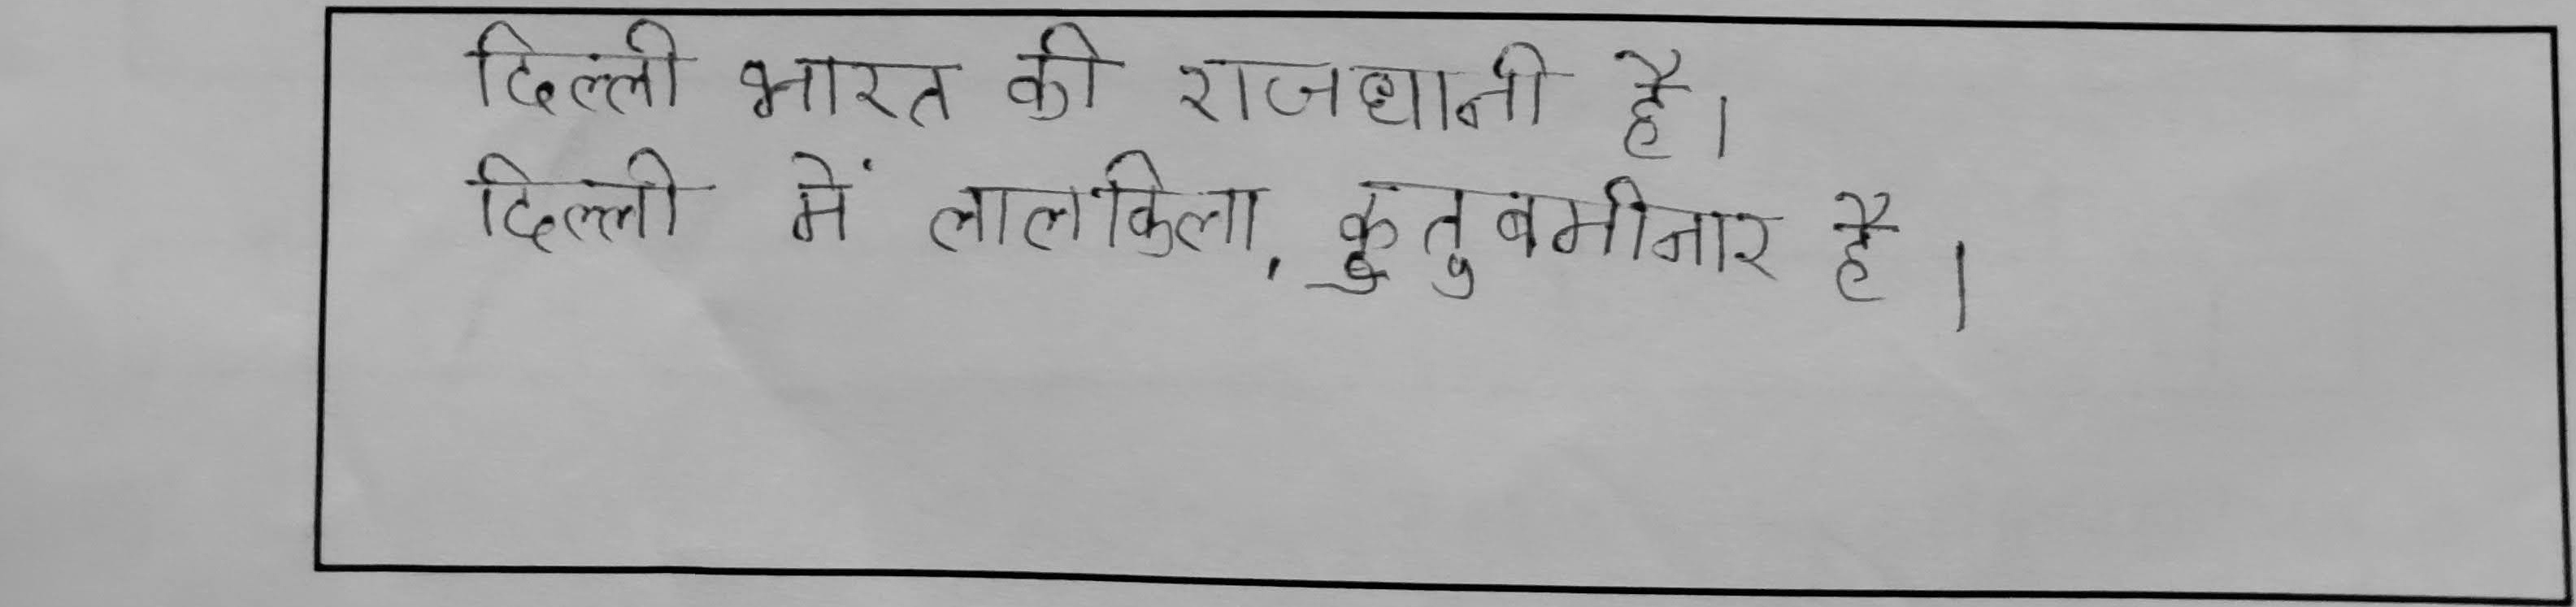 दिल्ली भारत की राजधानी है।
दिल्ली में लालकिला, कुतुबमीनार है।